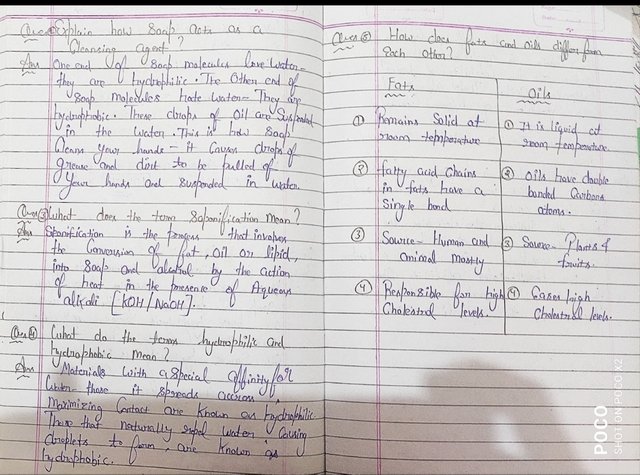 Ques② Explain how Soap acts as a
Cleansing agent?
Ans One end of Soap molecules love water-
they are hydrophilic. The Other end of
Soap molecules hate water- They are
hydrophobic. These drops of Oil are Suspended
in the water. This is how Soap
Cleans your hands - it causes drops of
grease and dirt to be pulled of
Your hands and suspended in water.
Ques③ What does the term Saponification mean?
Ans Sponification is the process that involves
the Conversion of fat, oil or lipid,
into Soap and alcohol by the action
of heat in the presence of Aqueous
alkali [KOH/NaOH].
Ques④ What do the terms hydrophilic and
hydrophobic mean?
Ans Materials with a special affinity for
water- those it spreads across,
Maximizing Contact are known as hydrophilic
Those that naturally repel water causing
droplets to form, are known as
hydrophobic.
Ques⑤ How does fats and oils differ from
Each other?
Fats Oils
① Remains Solid at ① It is liquid at
room temperature room temperature.
② fatty acid Chains ② Oils have double
in fats have a bonded Carbons
Single bond atoms.
③ Source- Human and ③ Source- Plants &
animal mostly fruits.
④ Responsible for high ④ Cases high
Cholestrol levels. Cholestrol levels.
POCO
SHOT ON POCO X2